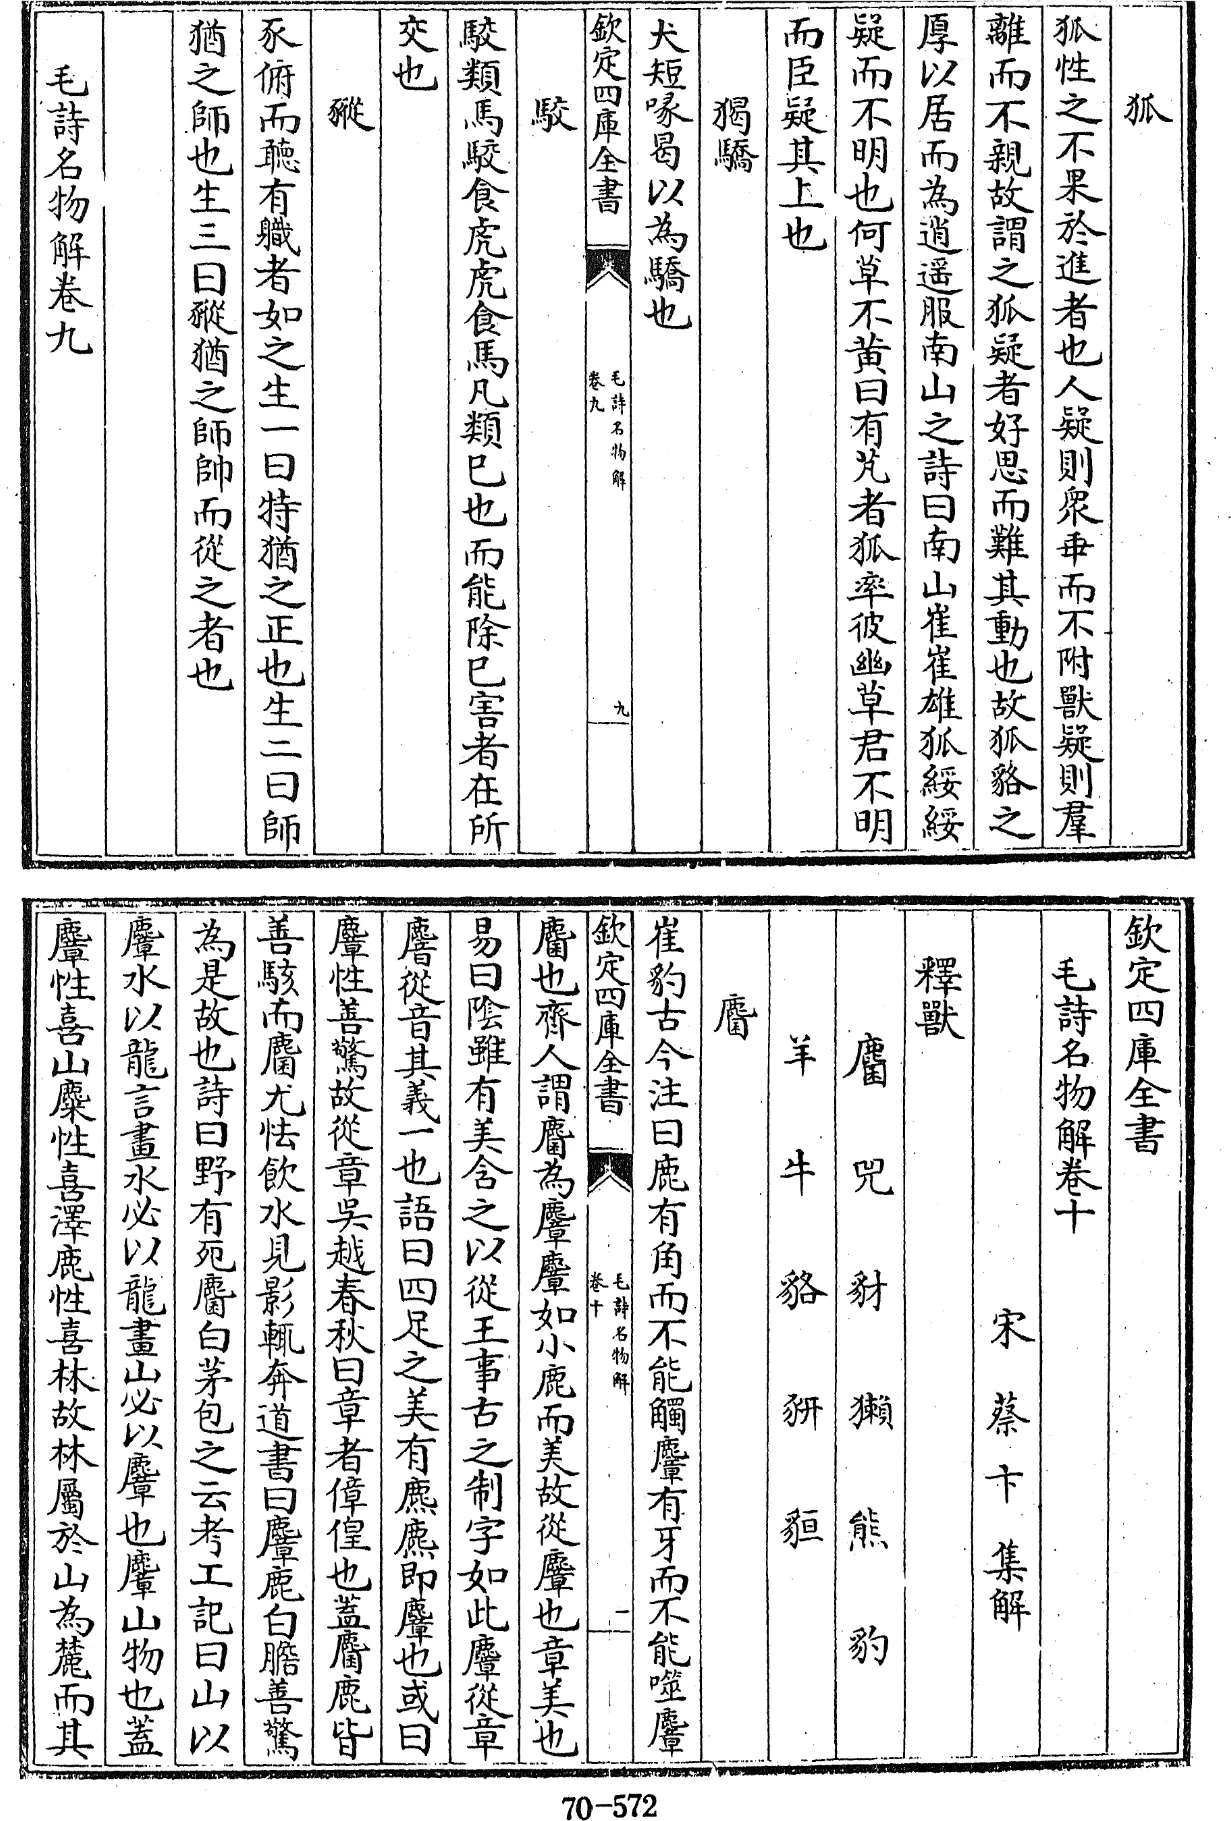 狐
狐性之不果於進者也人疑則衆乖而不附獸疑則羣
離而不親故謂之狐疑者好思而難其動也故狐貉之
厚以居而為逍遥服南山之詩曰南山崔崔雄狐綏綏
疑而不明也何草不黄曰有芃者狐率彼幽草君不明
而臣疑其上也
猲驕
犬短喙曷以為驕也
欽定四庫全書
毛詩名物解
卷九
九
駮
駮類馬駮食虎虎食馬凡類已也而能除已害者在所
交也
豵
豕俯而聽有職者如之生一曰特猶之正也生二曰師
猶之師也生三曰豵猶之師帥而從之者也
毛詩名物解卷九
欽定四庫全書
毛詩名物解卷十
宋 蔡卞 集解
釋獸
麕 兕 豺 獺 熊 豹
羊 牛 貉 豣 貆
麕
崔豹古今注曰鹿有角而不能觸麞有牙而不能噬麞
欽定四庫全書
毛詩名物解
卷十
一
麕也齊人謂麕為麞麞如小鹿而美故從麞也章美也
易曰陰雖有美含之以從王事古之制字如此麞從章
麔從音其義一也語曰四足之美有麃麃即麞也或曰
麞性善驚故從章吳越春秋曰章者倖偟也蓋麕鹿皆
善駭而麕尤怯飲水見影輒奔道書曰麞鹿白膽善驚
為是故也詩曰野有死麕白茅包之云考工記曰山以
麞水以龍言畫水必以龍畫山必以麞也麞山物也蓋
麞性喜山麋性喜澤鹿性喜林故林屬於山為麓而其
70-572